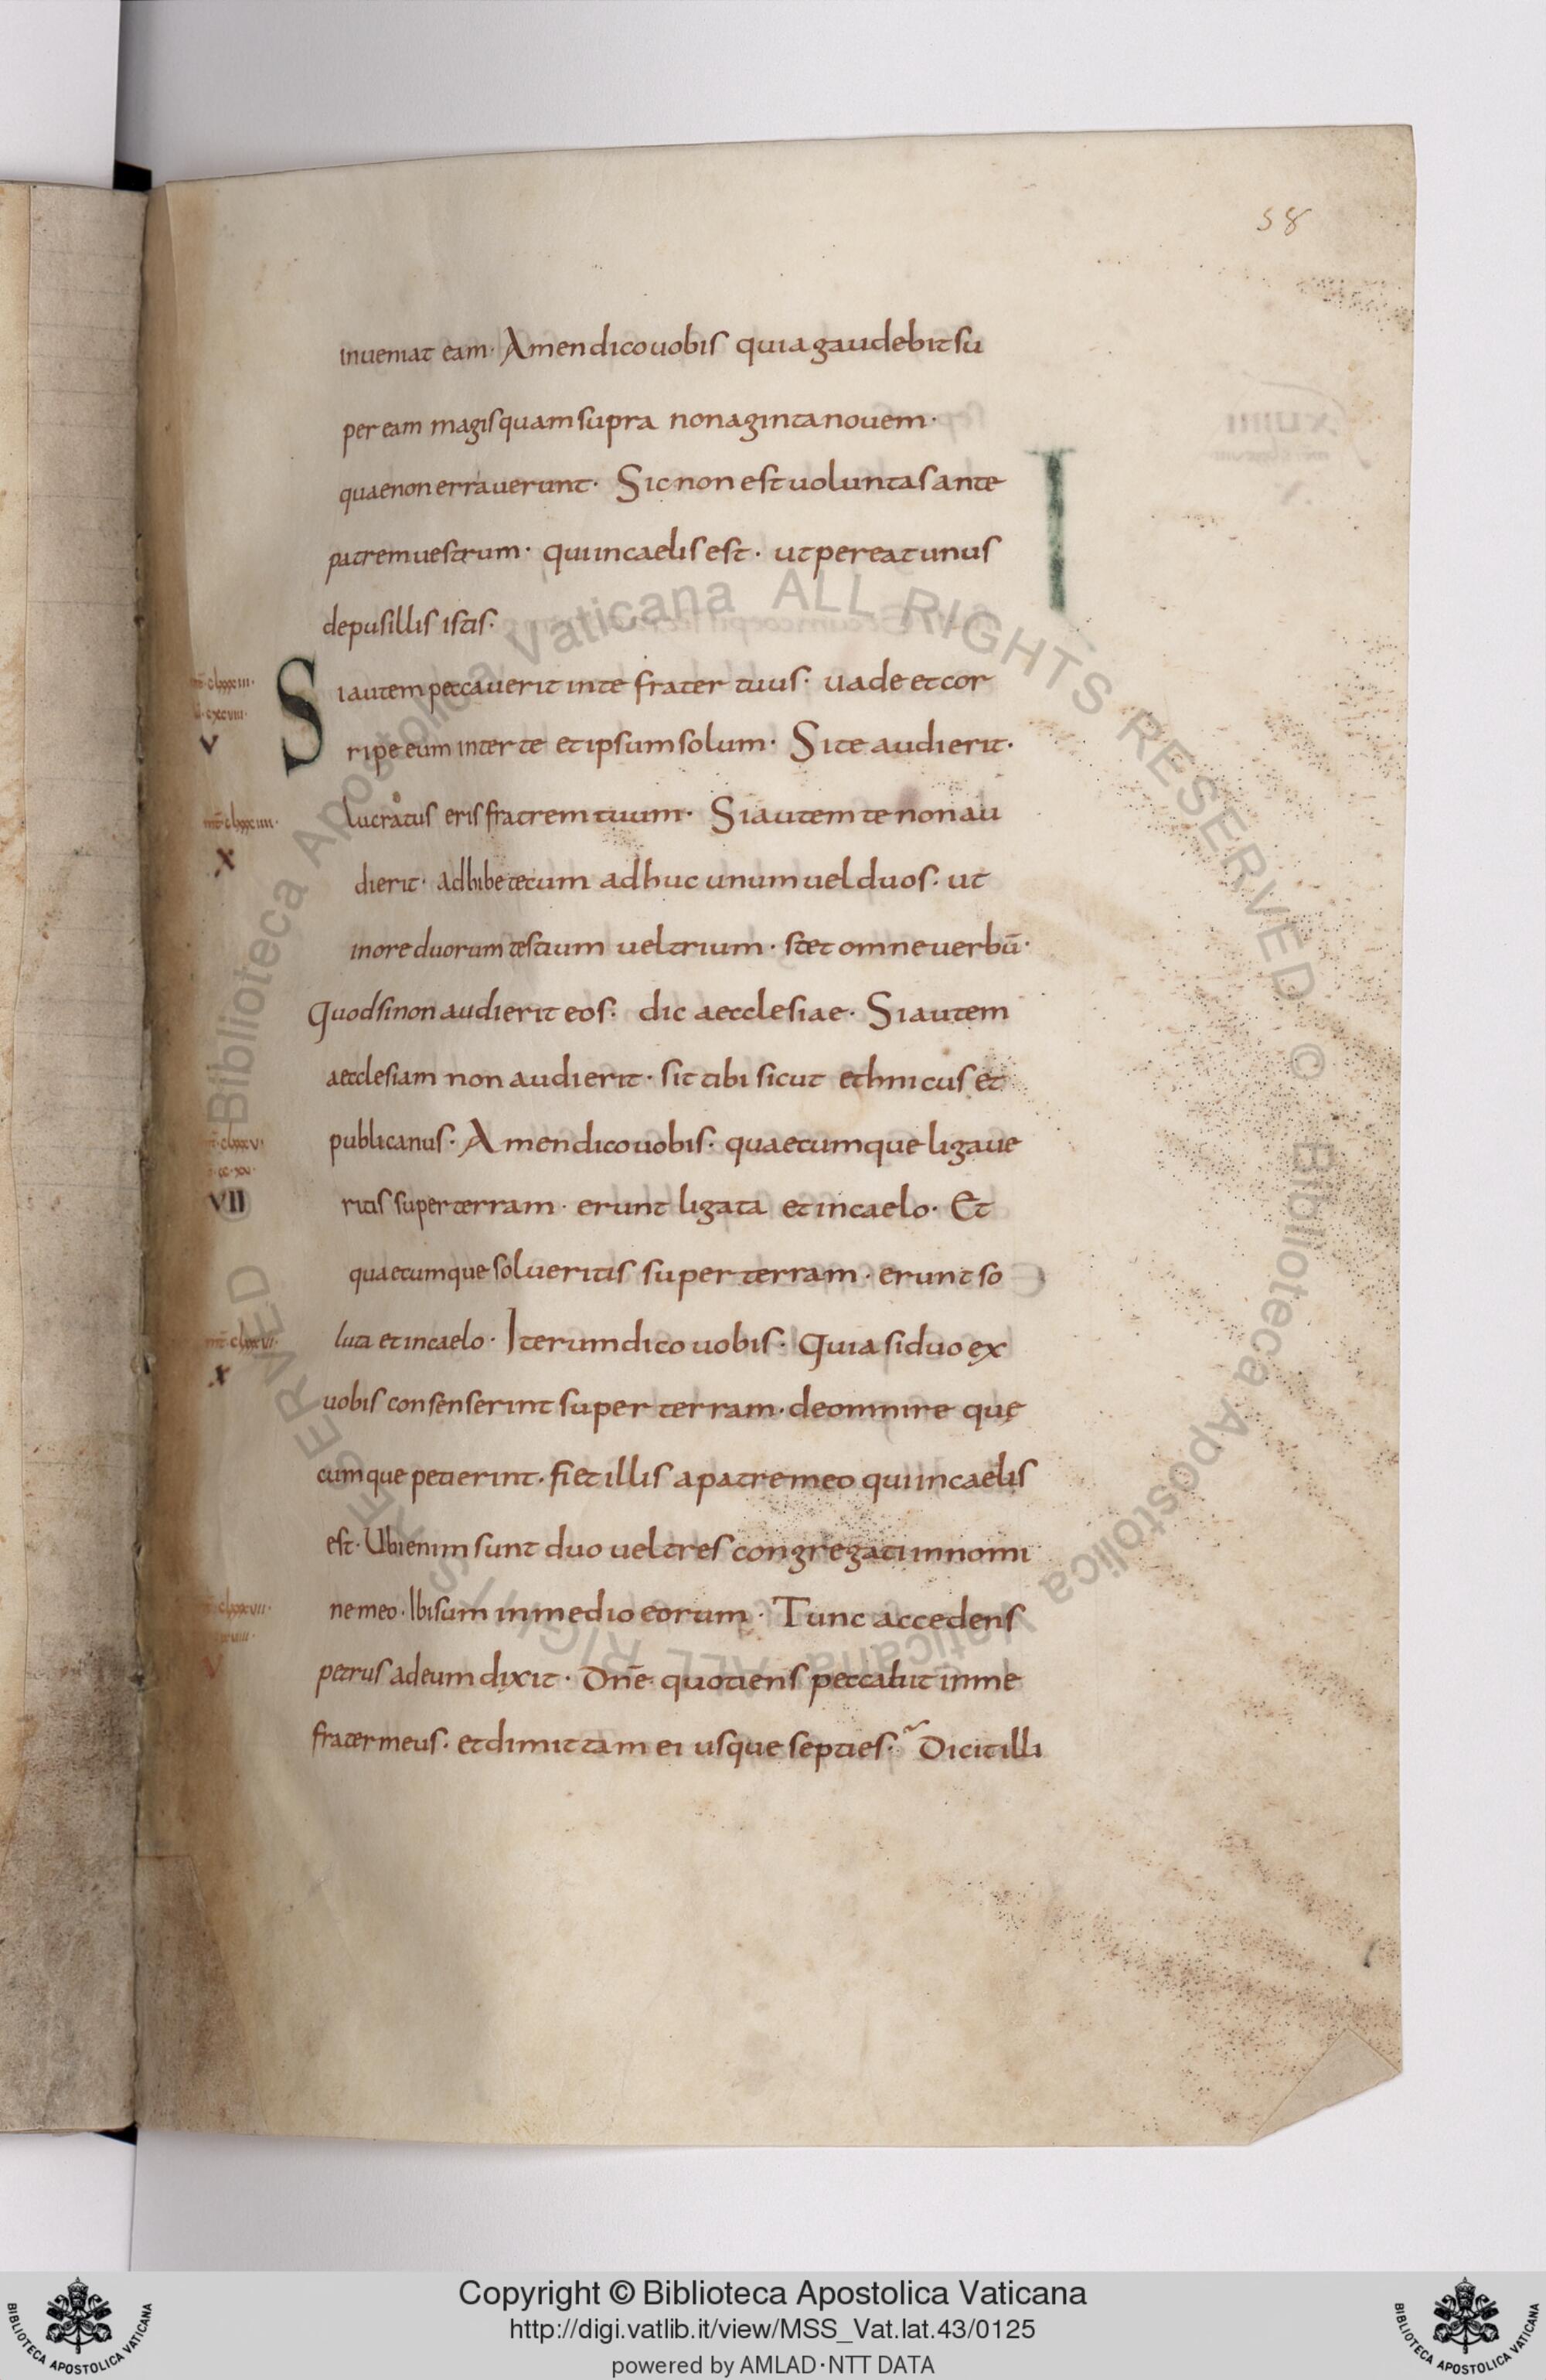 58
inueniat eam· Amen dico uobis quia gaudebit su
per eam magis quam supra nonaginta nouem·
quae non errauerunt· Sic non est uoluntas ante
patrem uestrum· qui in caelis est· ut pereat unus
de pusillis istis·
Si autem peccauerit in te frater tuus· uade et cor
ripe eum inter te et ipsum solum· Si te audierit·
lucratus eris fratrem tuum· Si autem te non au
dierit· adhibe tecum adhuc unum uel duos· ut
in ore duorum testium uel trium· stet omne uerbū·
Quod si non audierit eos· dic aecclesiae· Si autem
aecclesiam non audierit· sit tibi sicut ethnicus et
publicanus· Amen dico uobis· quaecumque ligaue
ritis super terram· erunt ligata et in caelo· Et
quaecumque solueritis super terram· erunt so
luta et in caelo· Iterum dico uobis· Quia si duo ex
uobis consenserint super terram· de omni re quę
cumque petierint· fiet illis a patre meo qui in caelis
est· Ubi enim sunt duo uel tres congregati in nomi
ne meo· Ibi sum in medio eorum· Tunc accedens
petrus ad eum dixit· Dnē quotiens peccabit in me
frater meus· et dimittam ei usque septies· Dicit illi
V
X
VII
X
V
Copyright © Biblioteca Apostolica Vaticana
http://digi.vatlib.it/view/MSS_Vat.lat.43/0125
powered by AMLAD·NTT DATA
BIBLIOTECA APOSTOLICA VATICANA
BIBLIOTECA APOSTOLICA VATICANA
Biblioteca Apostolica Vaticana ALL RIGHTS RESERVED © Biblioteca Apostolica Vaticana ALL RIGHTS RESERVED ©